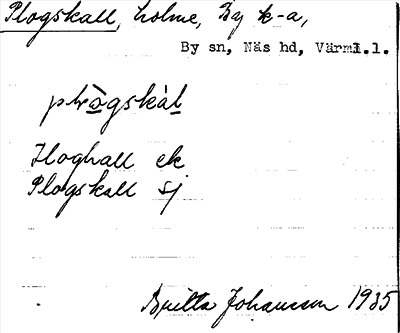 Plogskall, holme, By k-a,
By sn, Näs hd, Värml.l.
plωògskàl
Floghall ek
Plogskall sj
Britta Johansson 1935